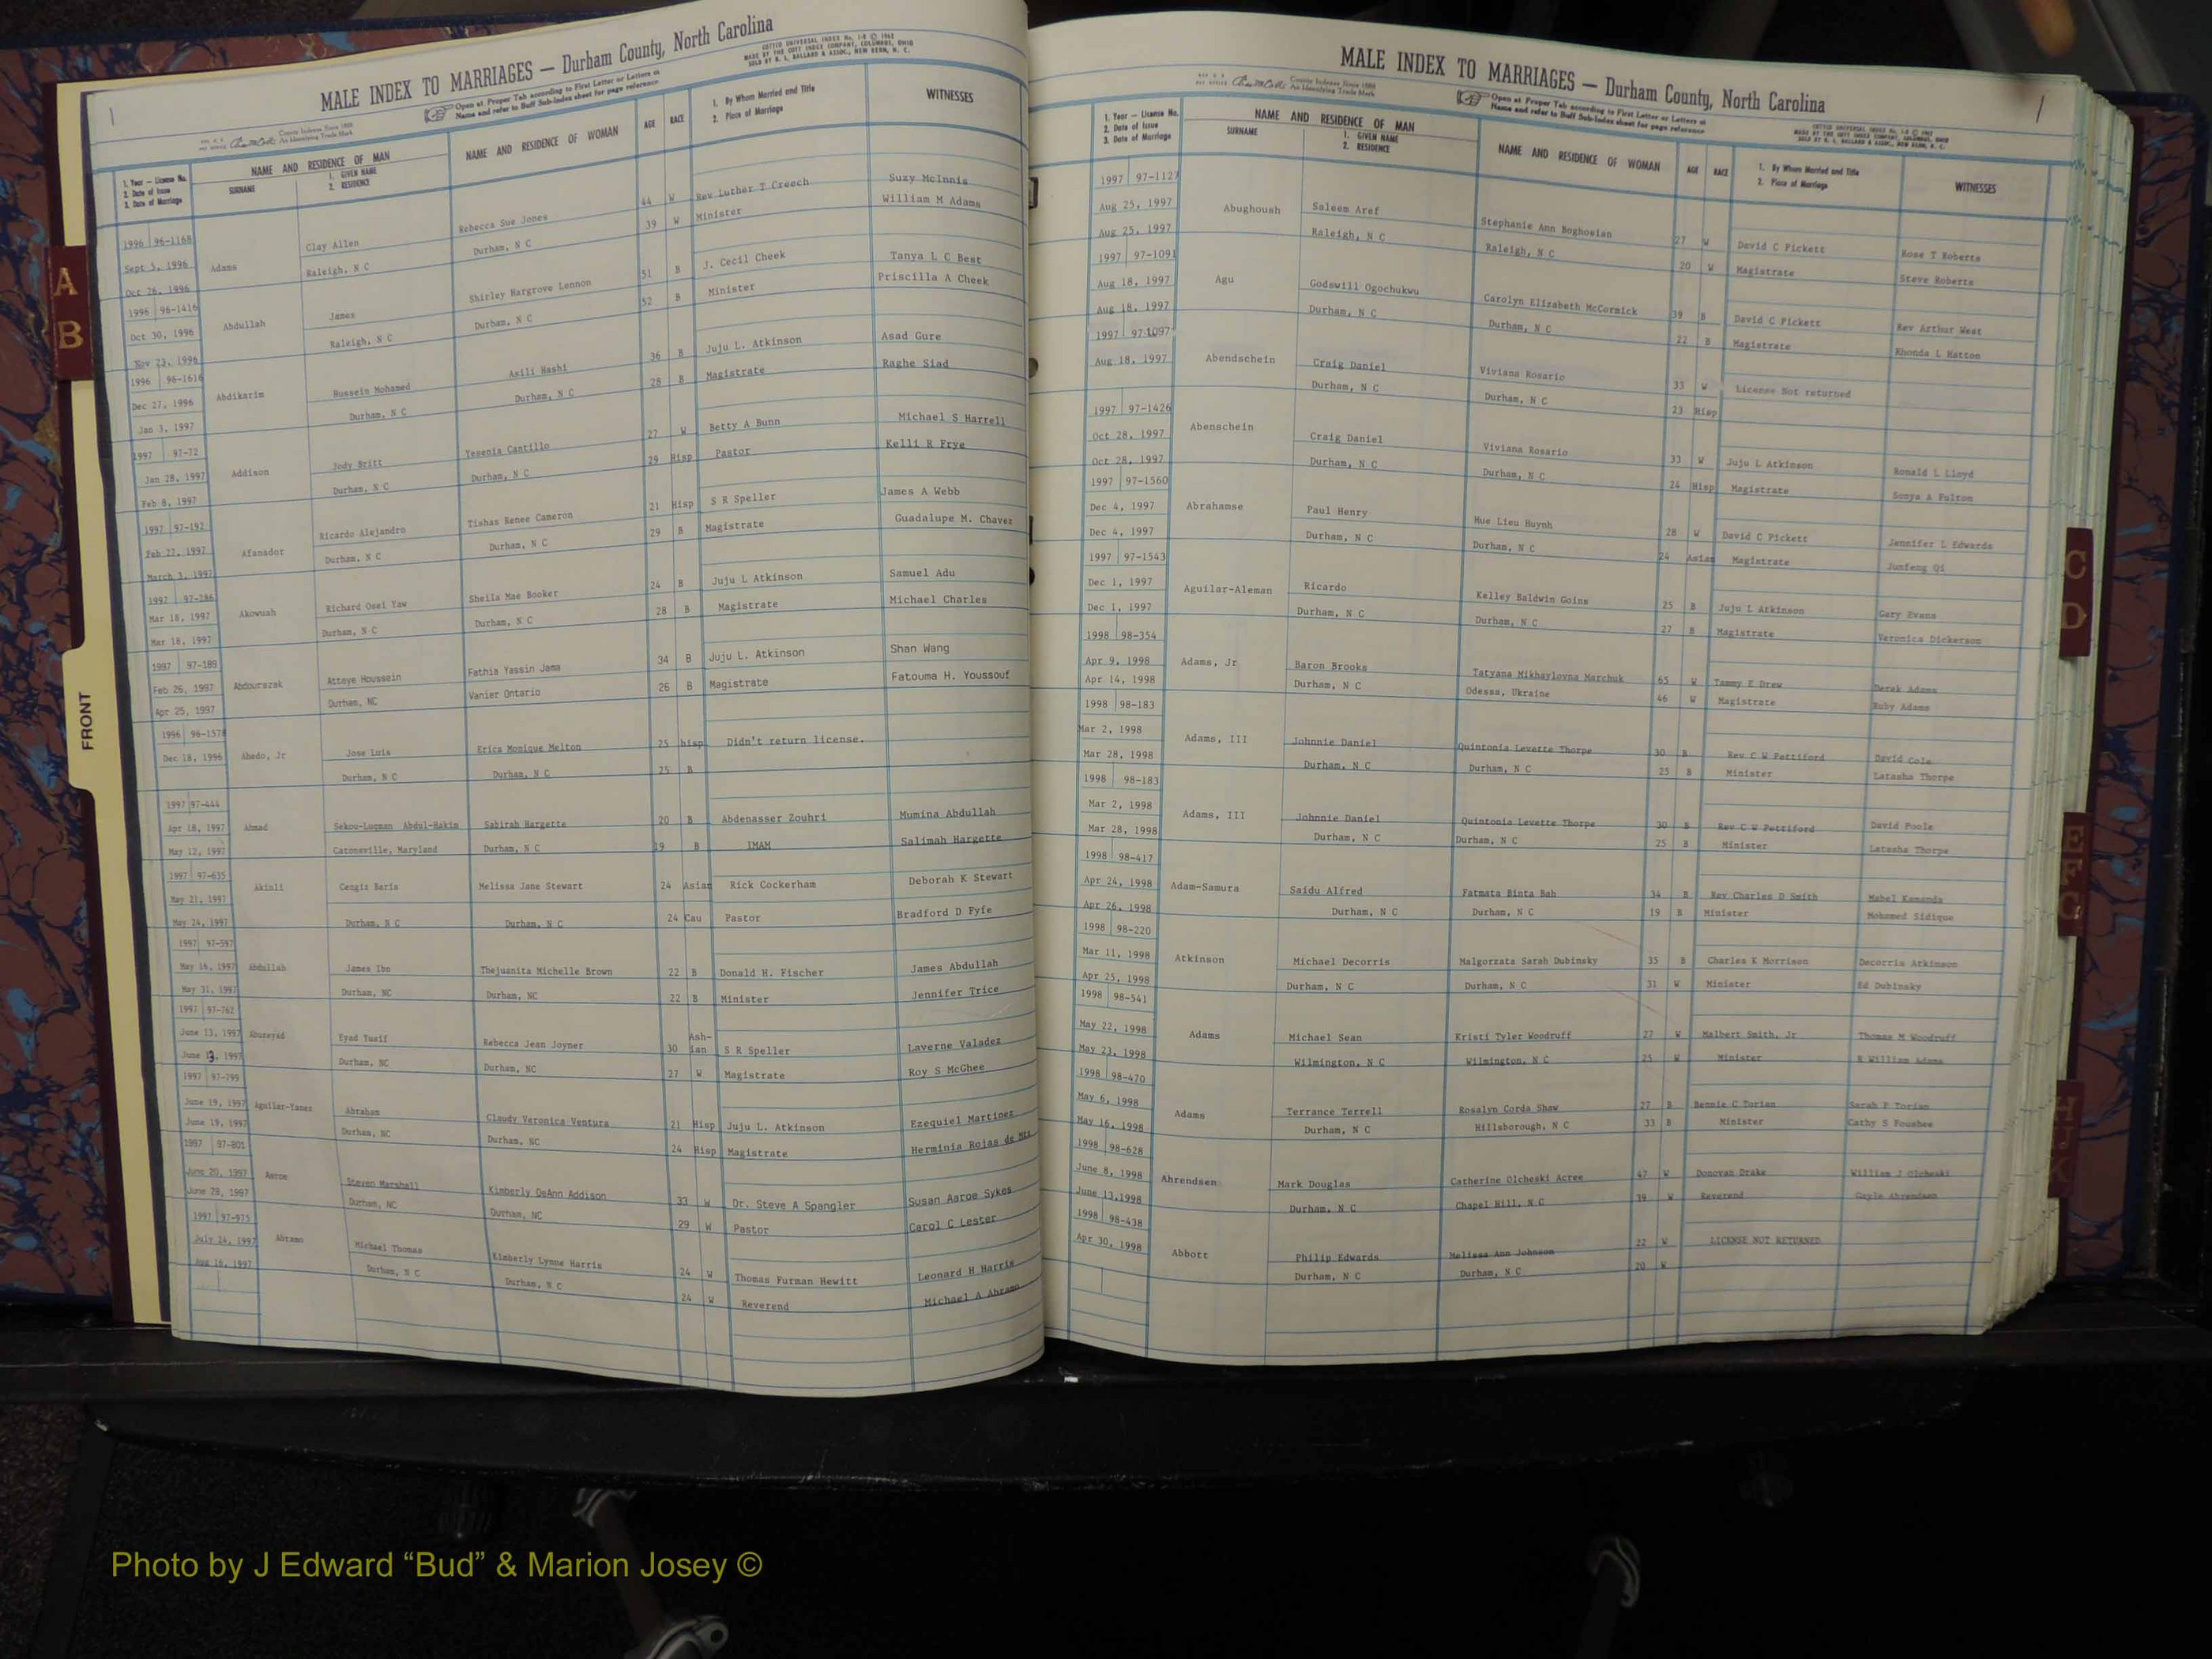 MALE INDEX TO MARRIAGES — Durham County, North Carolina
COTTCO UNIVERSAL INDEX No. 1-8 © 1962
MADE BY THE COTT INDEX COMPANY, COLUMBUS, OHIO
SOLD BY R. L. BALLARD & ASSOC., NEW BERN, N. C.
County Indexes Since 1888
An Identifying Trade Mark
Open at Proper Tab according to First Letter or Letters of
Name and refer to Buff Sub-Index sheet for page reference
1. Year — License No.
2. Date of Issue
3. Date of Marriage
NAME AND RESIDENCE OF MAN
SURNAME
1. GIVEN NAME
2. RESIDENCE
NAME AND RESIDENCE OF WOMAN
AGE
RACE
1. By Whom Married and Title
2. Place of Marriage
WITNESSES
1996 96-1168 Clay Allen Rebecca Sue Jones 44 W Rev Luther T Creech Suzy McInnis
Sept 5, 1996 Adams Raleigh, N C Durham, N C 39 W Minister William M Adams
Oct 26, 1996
1996 96-1416 James Shirley Hargrove Lennon 51 B J. Cecil Cheek Tanya L C Best
Oct 30, 1996 Abdullah Raleigh, N C Durham, N C 52 B Minister Priscilla A Cheek
Nov 23, 1996
1996 96-1616 Hussein Mohamed Asili Hashi 36 B Juju L. Atkinson Asad Gure
Dec 27, 1996 Abdikarim Durham, N C Durham, N C 28 B Magistrate Raghe Siad
Jan 3, 1997
1997 97-72 Jody Britt Yesenia Cantillo 27 W Betty A Bunn Michael S Harrell
Jan 28, 1997 Addison Durham, N C Durham, N C 29 Hisp Pastor Kelli R Frye
Feb 8, 1997
1997 97-192 Ricardo Alejandro Tishas Renee Cameron 21 Hisp S R Speller James A Webb
Feb 27, 1997 Afanador Durham, N C Durham, N C 29 B Magistrate Guadalupe M. Chavez
March 3, 1997
1997 97-286 Richard Osei Yaw Sheila Mae Booker 24 B Juju L Atkinson Samuel Adu
Mar 18, 1997 Akowuah Durham, N C Durham, N C 28 B Magistrate Michael Charles
Mar 18, 1997
1997 97-189 Atteye Houssein Fathia Yassin Jama 34 B Juju L. Atkinson Shan Wang
Feb 26, 1997 Abdourazak Durham, NC Vanier Ontario 26 B Magistrate Fatouma H. Youssouf
Apr 25, 1997
1996 96-1578 Jose Luis Erica Monique Melton 25 hisp Didn't return license.
Dec 18, 1996 Abedo, Jr Durham, N C Durham, N C 25 B
1997 97-444
Apr 18, 1997 Ahmad Sekou-Luqman Abdul-Hakim Sabirah Hargette 20 B Abdenasser Zouhri Mumina Abdullah
May 12, 1997 Catonsville, Maryland Durham, N C 19 B IMAM Salimah Hargette
1997 97-635 Akinli Cengiz Baris Melissa Jane Stewart 24 Asian Rick Cockerham Deborah K Stewart
May 21, 1997
May 24, 1997 Durham, N C Durham, N C 24 Cau Pastor Bradford D Fyfe
1997 97-597
May 16, 1997 Abdullah James Ibn Thejuanita Michelle Brown 22 B Donald H. Fischer James Abdullah
May 31, 1997 Durham, NC Durham, NC 22 B Minister Jennifer Trice
1997 97-762
June 13, 1997 Abuzeyad Eyad Yusif Rebecca Jean Joyner 30 Ash-ian S R Speller Laverne Valadez
June 13, 1997 Durham, NC Durham, NC 27 W Magistrate Roy S McGhee
1997 97-799
June 19, 1997 Aguilar-Yanez Abraham Claudy Veronica Ventura 21 Hisp Juju L. Atkinson Ezequiel Martinez
June 19, 1997 Durham, NC Durham, NC 24 Hisp Magistrate Herminia Rojas de
1997 97-801
June 20, 1997 Aaroe Steven Marshall Kimberly DeAnn Addison 33 W Dr. Steve A Spangler Susan Aaroe Sykes
June 28, 1997 Durham, NC Durham, NC 29 W Pastor Carol C Lester
1997 97-975
July 24, 1997 Abramo Michael Thomas Kimberly Lynne Harris 24 W Thomas Furman Hewitt Leonard H Harris
Aug 16, 1997 Durham, N C Durham, N C 24 W Reverend Michael A Abramo
MALE INDEX TO MARRIAGES — Durham County, North Carolina
COTTCO UNIVERSAL INDEX No. 1-8 © 1962
MADE BY THE COTT INDEX COMPANY, COLUMBUS, OHIO
SOLD BY R. L. BALLARD & ASSOC., NEW BERN, N. C.
County Indexes Since 1888
An Identifying Trade Mark
Open at Proper Tab according to First Letter or Letters of
Name and refer to Buff Sub-Index sheet for page reference
1. Year — License No.
2. Date of Issue
3. Date of Marriage
NAME AND RESIDENCE OF MAN
SURNAME
1. GIVEN NAME
2. RESIDENCE
NAME AND RESIDENCE OF WOMAN
AGE
RACE
1. By Whom Married and Title
2. Place of Marriage
WITNESSES
1997 97-1127
Aug 25, 1997 Abughoush Saleem Aref Stephanie Ann Boghosian 27 W David C Pickett Rose T Roberts
Aug 25, 1997 Raleigh, N C Raleigh, N C 20 W Magistrate Steve Roberts
1997 97-1091
Aug 18, 1997 Agu Godswill Ogochukwu Carolyn Elizabeth McCormick 39 B David C Pickett Rev Arthur West
Aug 18, 1997 Durham, N C Durham, N C 22 B Magistrate Rhonda L Hatton
1997 97-1097
Aug 18, 1997 Abendschein Craig Daniel Viviana Rosario 33 W License Not returned
Durham, N C Durham, N C 23 Hisp
1997 97-1426
Oct 28, 1997 Abenschein Craig Daniel Viviana Rosario 33 W Juju L Atkinson Ronald L Lloyd
Oct 28, 1997 Durham, N C Durham, N C 24 Hisp Magistrate Sonya A Fulton
1997 97-1560
Dec 4, 1997 Abrahamse Paul Henry Hue Lieu Huynh 28 W David C Pickett Jennifer L Edwards
Dec 4, 1997 Durham, N C Durham, N C 24 Asian Magistrate Junfeng Qi
1997 97-1543
Dec 1, 1997 Aguilar-Aleman Ricardo Kelley Baldwin Goins 25 B Juju L Atkinson Gary Evans
Dec 1, 1997 Durham, N C Durham, N C 27 B Magistrate Veronica Dickerson
1998 98-354
Apr 9, 1998 Adams, Jr Baron Brooks Tatyana Mikhaylovna Marchuk 65 W Tammy E Drew Derek Adams
Apr 14, 1998 Durham, N C Odessa, Ukraine 46 W Magistrate Ruby Adams
1998 98-183
Mar 2, 1998 Adams, III Johnnie Daniel Quintonia Levette Thorpe 30 B Rev C W Pettiford David Cole
Mar 28, 1998 Durham, N C Durham, N C 25 B Minister Latasha Thorpe
1998 98-183
Mar 2, 1998 Adams, III Johnnie Daniel Quintonia Levette Thorpe 30 B Rev C W Pettiford David Poole
Mar 28, 1998 Durham, N C Durham, N C 25 B Minister Latasha Thorpe
1998 98-417
Apr 24, 1998 Adam-Samura Saidu Alfred Fatmata Binta Bah 34 B Rev Charles D Smith Mabel Kamanda
Apr 26, 1998 Durham, N C Durham, N C 19 B Minister Mohamed Sidique
1998 98-220
Mar 11, 1998 Atkinson Michael Decorris Malgorzata Sarah Dubinsky 35 B Charles K Morrison Decorris Atkinson
Apr 25, 1998 Durham, N C Durham, N C 31 W Minister Ed Dubinsky
1998 98-541
May 22, 1998 Adams Michael Sean Kristi Tyler Woodruff 27 W Malbert Smith, Jr Thomas M Woodruff
May 23, 1998 Wilmington, N C Wilmington, N C 25 W Minister R William Adams
1998 98-470
May 6, 1998 Adams Terrance Terrell Rosalyn Corda Shaw 27 B Bennie C Torian Sarah P Torian
May 16, 1998 Durham, N C Hillsborough, N C 33 B Minister Cathy S Foushee
1998 98-628
June 8, 1998 Ahrendsen Mark Douglas Catherine Olcheski Acree 47 W Donovan Drake William J Olcheski
June 13,1998 Durham, N C Chapel Hill, N.C 39 W Reverend Gayle Ahrendsen
1998 98-438
Apr 30, 1998 Abbott Philip Edwards Melissa Ann Johnson 22 W LICENSE NOT RETURNED
Durham, N C Durham, N C 20 W
A
B
FRONT
C
D
E
F
G
H
Photo by J Edward “Bud” & Marion Josey ©